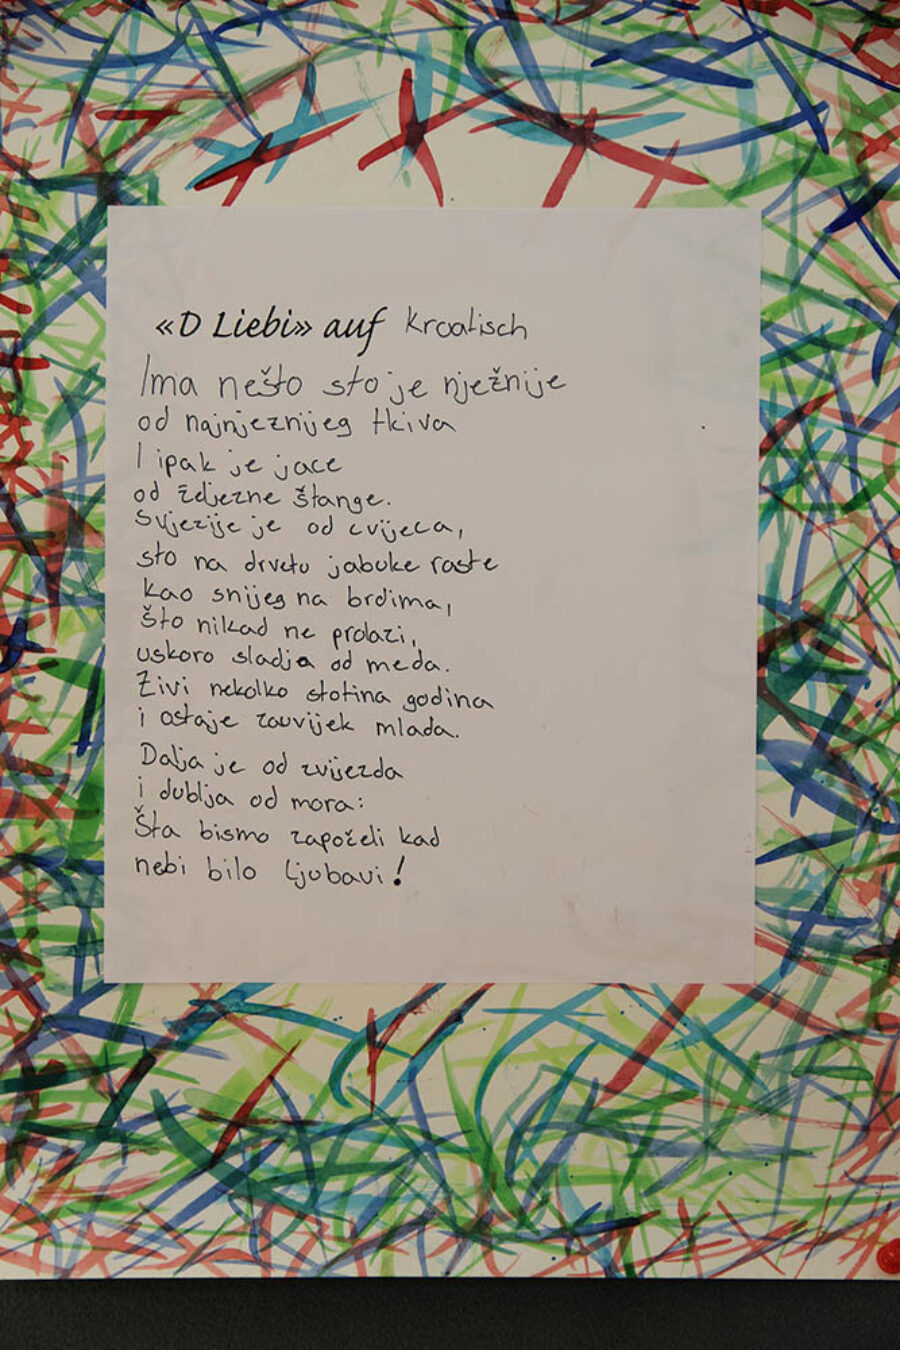 «D Liebi» auf Kroatisch
Ima nešto sto je nježnije
od najnjeznijeg tkiva
I ipak je jace
od željezne štange.
Svjezije je od cvijeca,
sto na drvetu jabuke raste
kao snijeg na brdima,
što nikad ne prolazi,
uskoro sladja od meda.
Živi nekolko stotina godina
i ostaje zauvijek mlada.
Dalja je od zvijezda
i dublja od mora:
Šta bismo započeli kad
nebi bilo ljubavi!